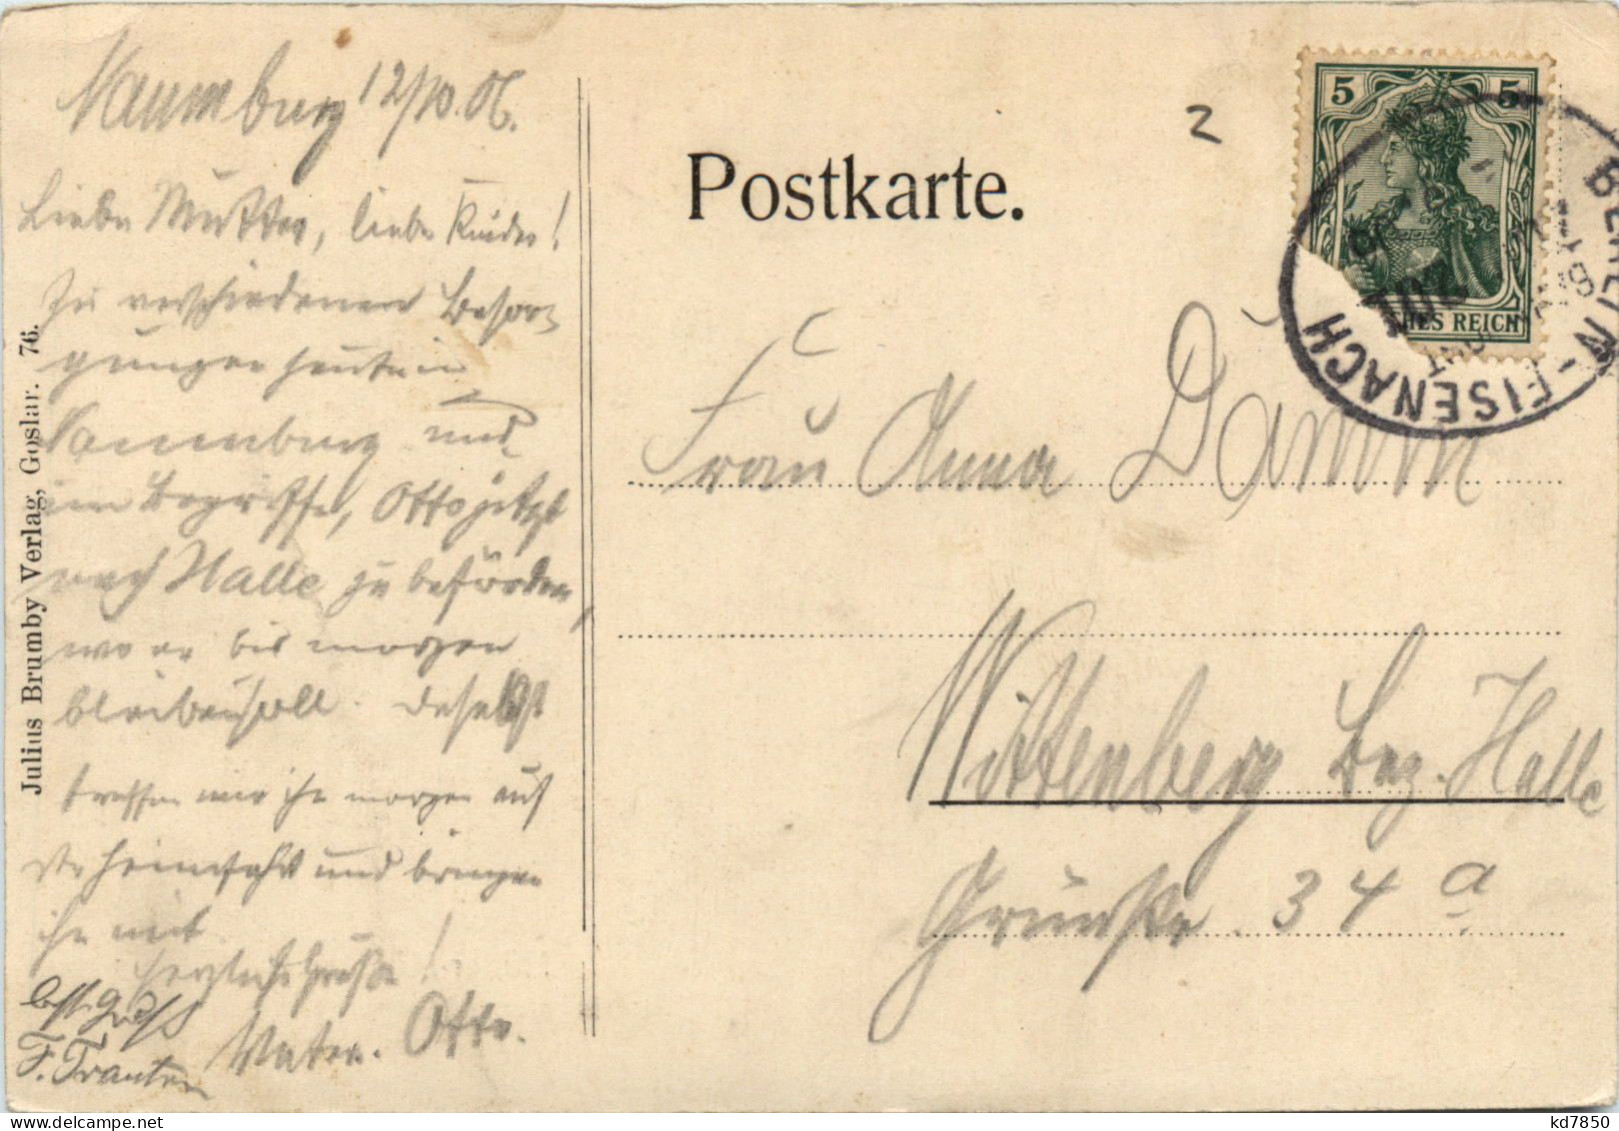 Naumburg 12/10.06.
Liebe Mutter, liebe Kinder!
Zu verschiedenen Besor-
gungen heute in
Naumburg und
im Begriffe, Otto jetzt
nach Halle zu befördern,
wo er bis morgen
bleiben soll. Daselbst
treffen wir ihn morgen auf
der Heimfahrt und bringen
ihn mit.
Herzliche Grüße!
Vater. Otto.
Best. Gruß
F. Tranter
Julius Brumby Verlag, Goslar. 76.
Postkarte.
2
5 5
HES REICH
BERLIN - EISENACH
ZUG
Frau Anna Damm
Wittenberg Bez. Halle
Grünstr. 34 a
kd7850